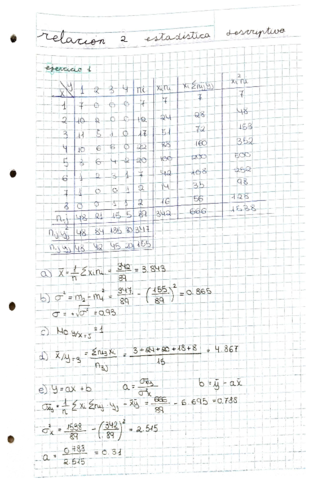 relacion 2 estadistica descriptiva
ejercicio 1
x\y 1 2 3 4 ni xini xi²ni
1 7 0 0 0 7 7 7 7
2 10 0 12 24 28 48
3 11 5 1 0 17 51 72 153
4 10 6 0 22 88 160 352
5 3 6 4 20 100 200 500
6 1 2 3 1 7 42 252
7 1 0 0 1 2 14 35 98
8 0 0 1 1 2 16 56 128
n.j 48 21 15 5 89 342 666 1538
48 84 135 347
48 42 45 20 155
a) x̄ = 1/n Σxini = 342/89 = 3.843
b) σ² = m2 - m1² = 347/89 - (155/89)² = 0.865
σ = +√σ² = 0.93
c) Mo y/x=3 = 1
d) x̄/y=3 = Σnij xi / n.j = / 15 = 4.867
e) y = ax + b a = σxy/σ²x b = ȳ - ax̄
σxy = 1/n Σxi Σnij yj - x̄ȳ = 666/89 - 6.695 = 0.788
σ²x = 1538/89 - (342/89)² = 2.515
a = 0.788/2.515 = 0.31